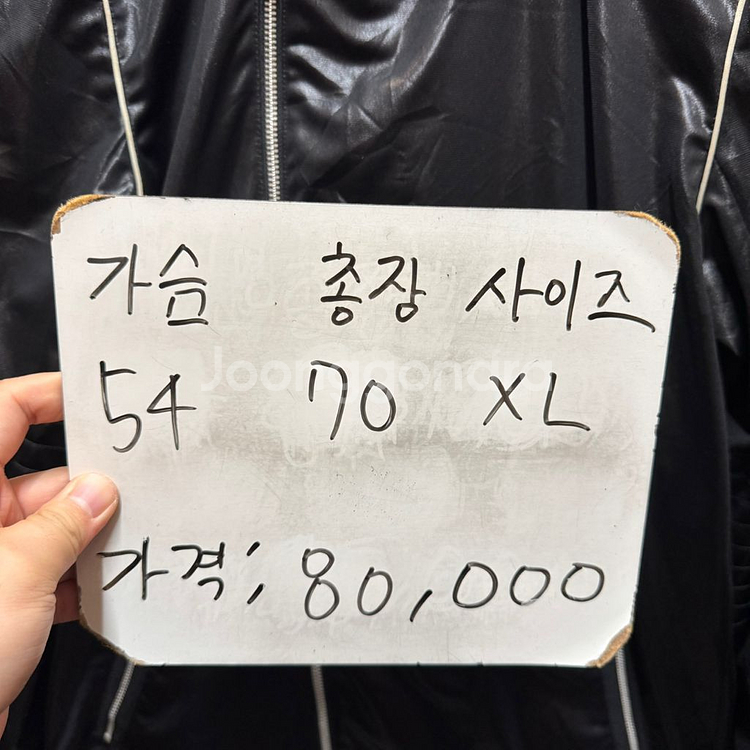 가슴 총장 사이즈
54 70 XL
Joonggonara
가격; 80,000